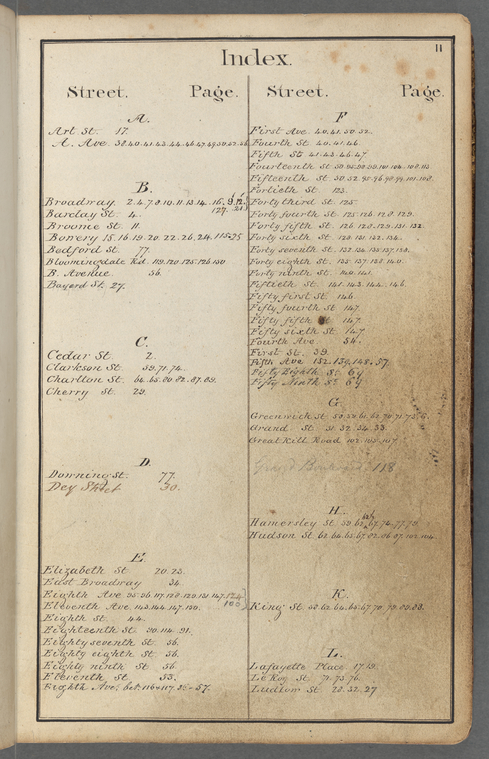 11
Index.
Street. Page.
A.
Art St. 17.
A. Ave. 38.40.41.43.44.46.47.49.50.52.
B.
Broadway. 2.4.7.8.10.11.13.14.16.9.12.
Barclay St. 4. 127.
Broome St. 11.
Bowery 15.16.19.20.22.26.24.115-75
Bedford St. 77.
Bloomingdale Rd. 119.120.125.126.130
B. Avenue. 56.
Bayard St. 27.
C.
Cedar St 2.
Clarkson St. 59.71.74.
Charlton St. 64.65.80.82.87.89.
Cherry St. 29.
D.
Downing St. 77.
Dey Street 30.
E.
Elizabeth St 20.23.
East Broadway 34.
Eighth Ave 117.120.131.147.124
Eleventh Ave 143.144.147.150.
Eighth St. 44.
Eighteenth St. 90.114.91.
Eighty seventh St. 56.
Eighty eighth St. 56.
Eighty ninth St. 56.
Eleventh St 53.
Eighth Ave, bet. 116 & 117. 57.
Street. Page.
F
First Ave. 40.41.50.52.
Fourth St. 40.41.46.
Fifth St 41.43.46.47
Fourteenth St
Fifteenth St. 50.52.95.96.98.99.101.108.
Fortieth St. 123.
Forty third St. 125
Forty fourth St 125.126.128.129.
Forty fifth St. 126.128.129.131.132.
Forty sixth St.
Forty seventh St.
Forty eighth St. 135.137.138.140.
Forty ninth St. 140.141.
Fiftieth St. 141.143.144.146.
Fifty first St 146
Fifty fourth St 147
Fifty fifth St 147.
Fifty sixth St. 147
Fourth Ave. 54.
First St. 39.
Fifth Ave 132.139.148.57.
Fifty Eighth St. 69
Fifty Ninth St 69
G.
Greenwich St.
Grand St. 31.32.34.33.
Great Kill Road 102.105.107.
118
H.
Hamersley St.
Hudson St
K.
King St. 58.62.64.65.67.70.79.83.88.
L.
Lafayette Place 17.19.
Le Roy St. 71.73.76.
Ludlow St 28.32.27